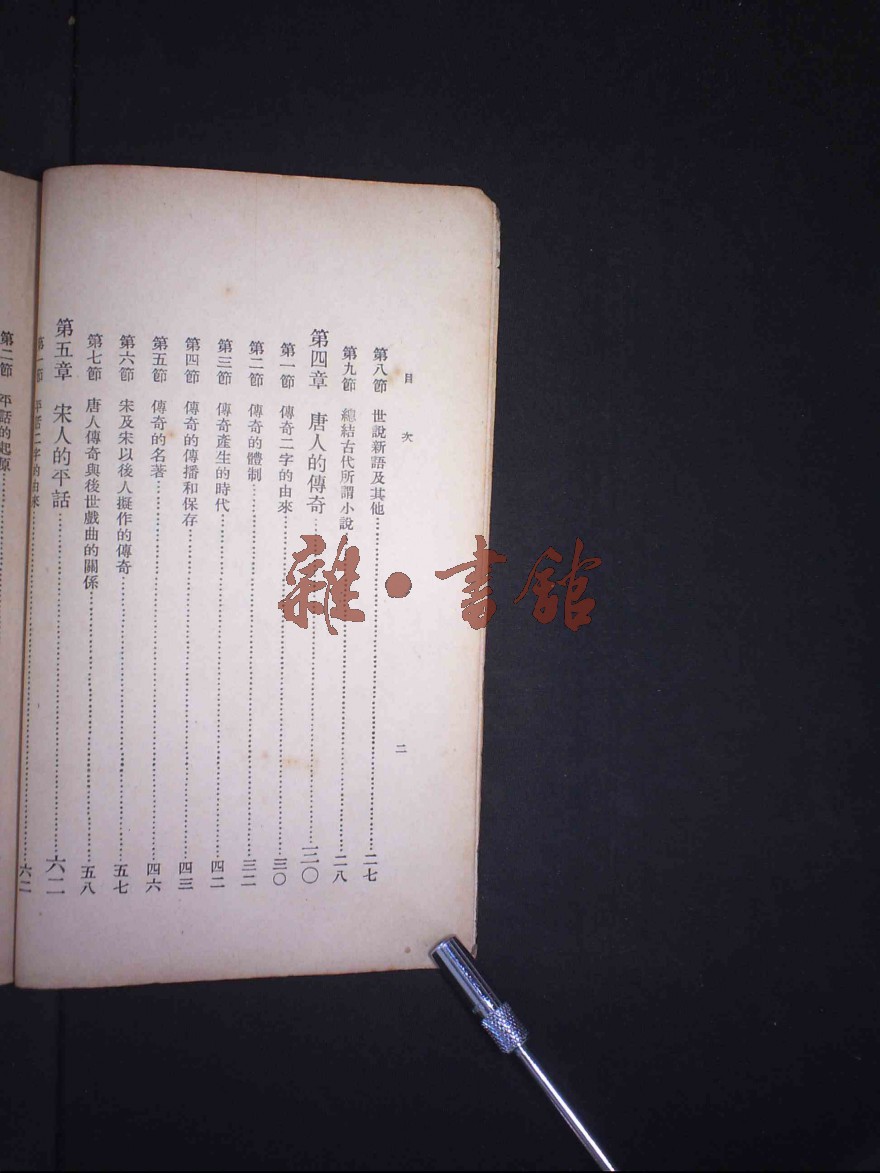 目次
二
第八節 世說新語及其他……二七
第九節 總結古代所謂小說……二八
第四章 唐人的傳奇……三〇
第一節 傳奇二字的由來……三〇
第二節 傳奇的體制……三二
第三節 傳奇產生的時代……四二
第四節 傳奇的傳播和保存……四三
第五節 傳奇的名著……四六
第六節 宋及宋以後人擬作的傳奇……五七
第七節 唐人傳奇與後世戲曲的關係……五八
第五章 宋人的平話……六二
第一節 平話二字的由來……六二
第二節 平話的起原……
雜·書館